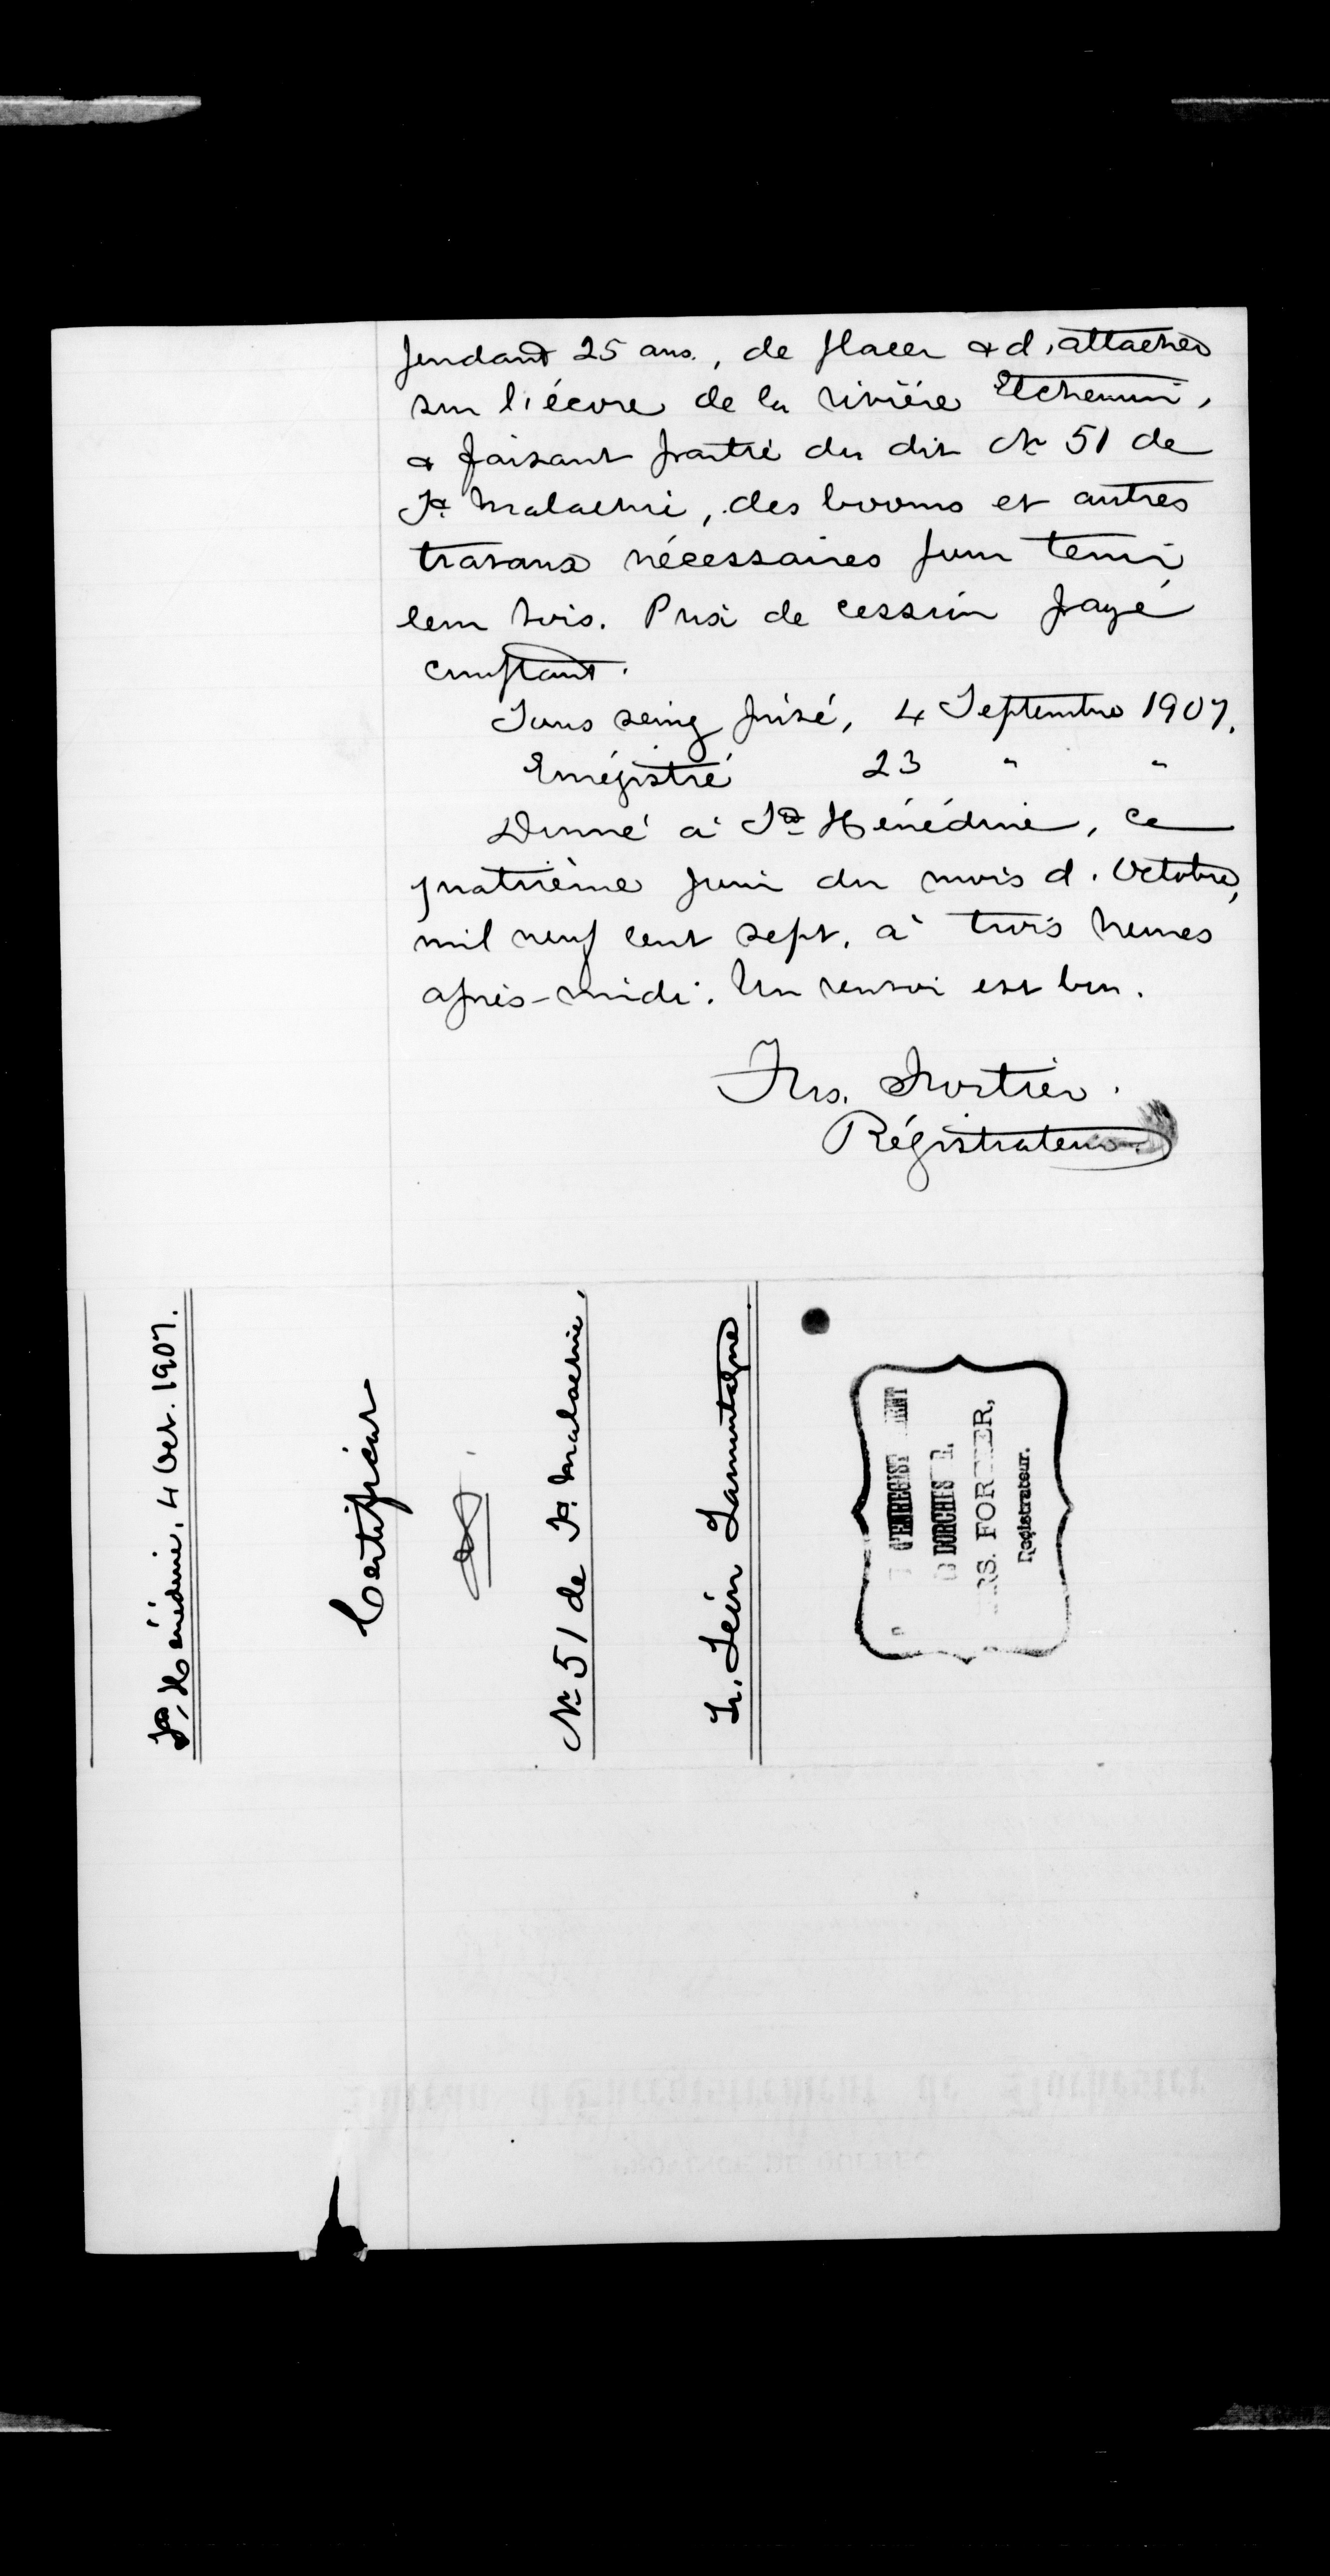 pendant 25 ans., de placer & d'attacher
sur l'écore de la rivière Etchemin,
& faisant partie du dit No 51 de
St. Malachie, des booms et autres
travaux nécessaires pour tenir
leur bois. Prix de cession payé
comptant.
Sous seing privé, 4 Septembre 1907.
Enrégistré 23 " "
Donné à Ste Hénédine, ce
quatrième jour du mois d'Octobre,
mil neuf cent sept, à trois heures
après-midi. Un renvoi est bon.
Frs. Fortier.
Régistrateur
Ste Hénédine, 4 Oct. 1907.
Certificat
No 51 de St. Malachie,
Léon Lamontagne
D'ENREGIST MENT
DORCHES R.
RS. FORTIER,
Registrateur.